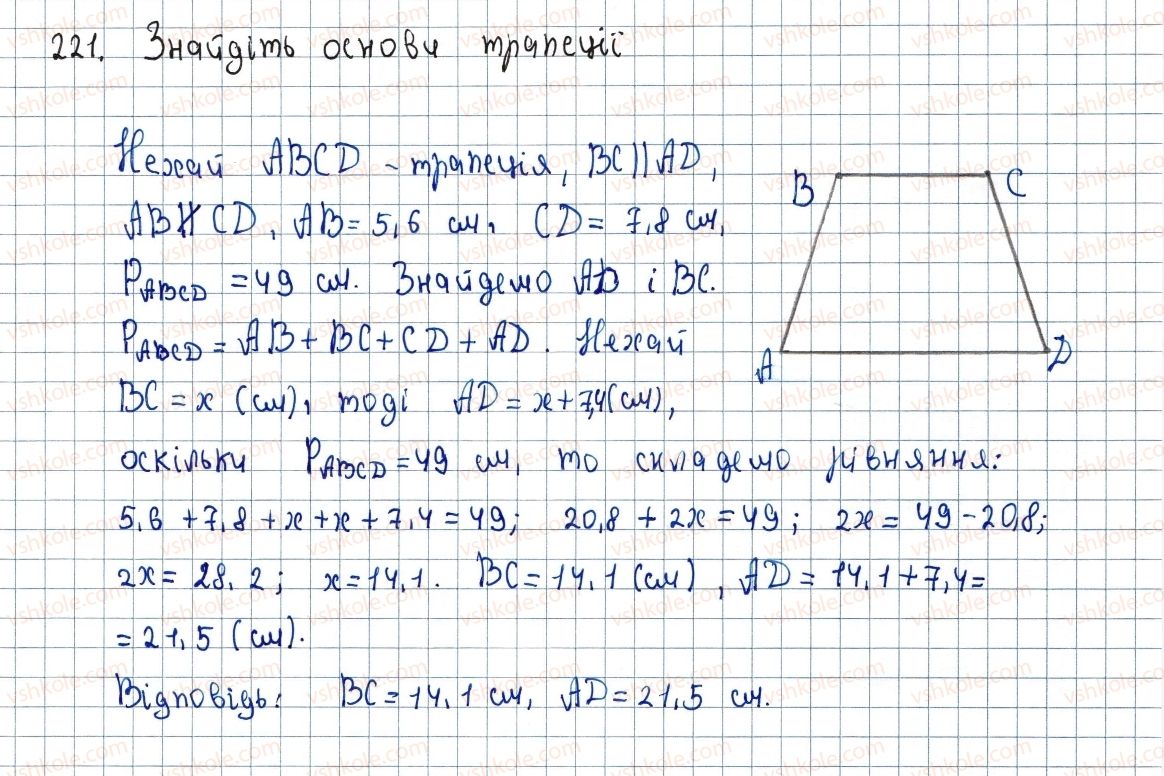 221. Знайдіть основи трапеції
Нехай ABCD - трапеція, BC || AD,
AB ∦ CD, AB = 5,6 см, CD = 7,8 см,
P_ABCD = 49 см. Знайдемо AD і BC.
P_ABCD = AB + BC + CD + AD. Нехай
BC = x (см), тоді AD = x + 7,4 (см),
оскільки P_ABCD = 49 см, то складемо рівняння:
5,6 + 7,8 + x + x + 7,4 = 49; 20,8 + 2x = 49; 2x = 49 - 20,8;
2x = 28,2; x = 14,1. BC = 14,1 (см), AD = 14,1 + 7,4 =
= 21,5 (см).
Відповідь: BC = 14,1 см, AD = 21,5 см.
B
C
A
D
vshkole.com